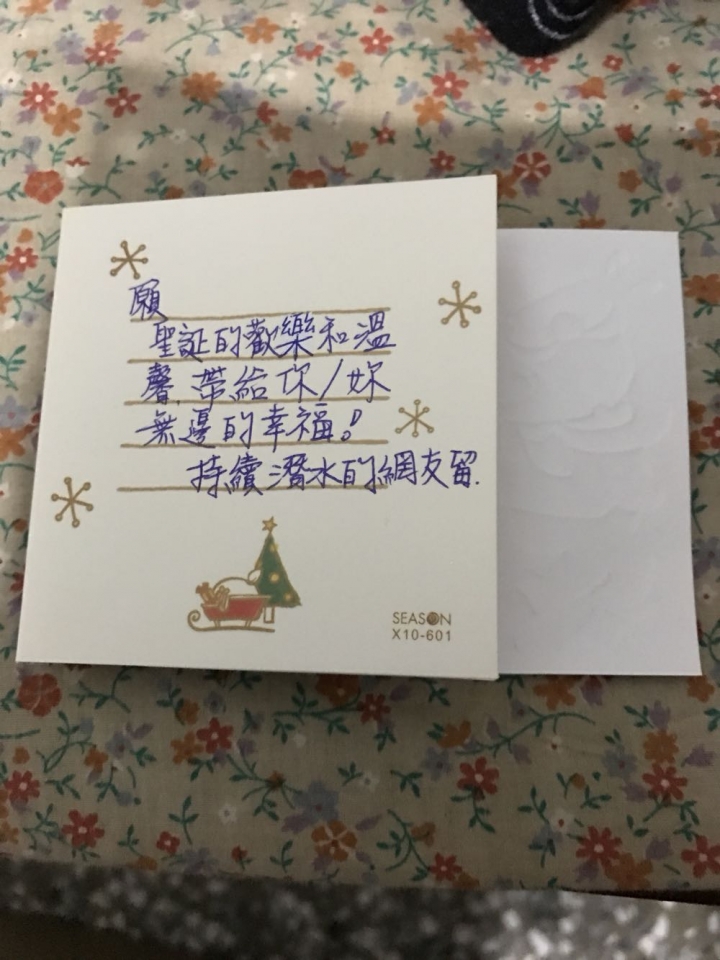 願
聖誕的歡樂和溫
馨帶給你/妳
無邊的幸福!
持續潛水的網友留.
SEASON
X10-601